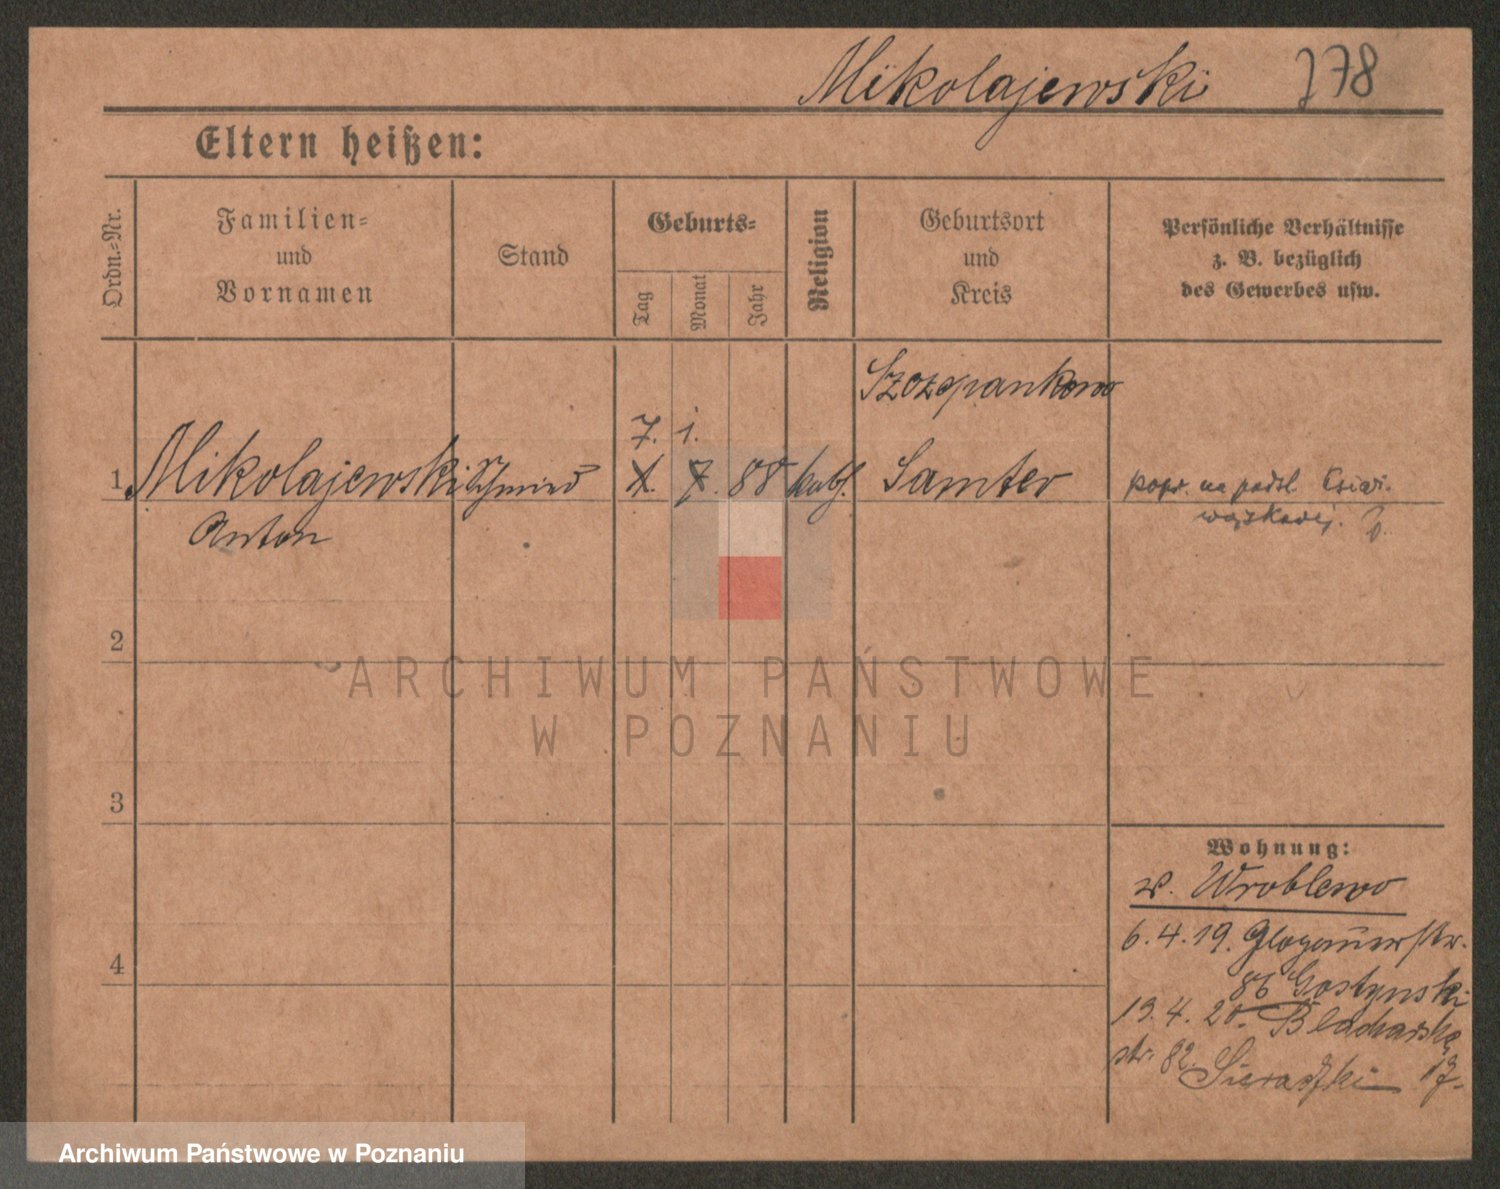 Mikolajewski 778
Eltern heißen:
Ordn.=Nr.
Familien=
und
Vornamen
Stand
Geburts=
Tag
Monat
Jahr
Religion
Geburtsort
und
Kreis
Persönliche Verhältnisse
z. B. bezüglich
des Gewerbes usw.
Szczepankowo
7. 1.
1 Mikolajewski Schmied 88 kath. Samter popr. na podst.
Anton wojskowej.
2
ARCHIWUM PAŃSTWOWE
W POZNANIU
3
Wohnung:
v. Wroblewo
4
6.4.19. Glogauerstr.
86 Gostynski
19.4.20. Blacharska
str. 82. Sieradzki
Archiwum Państwowe w Poznaniu